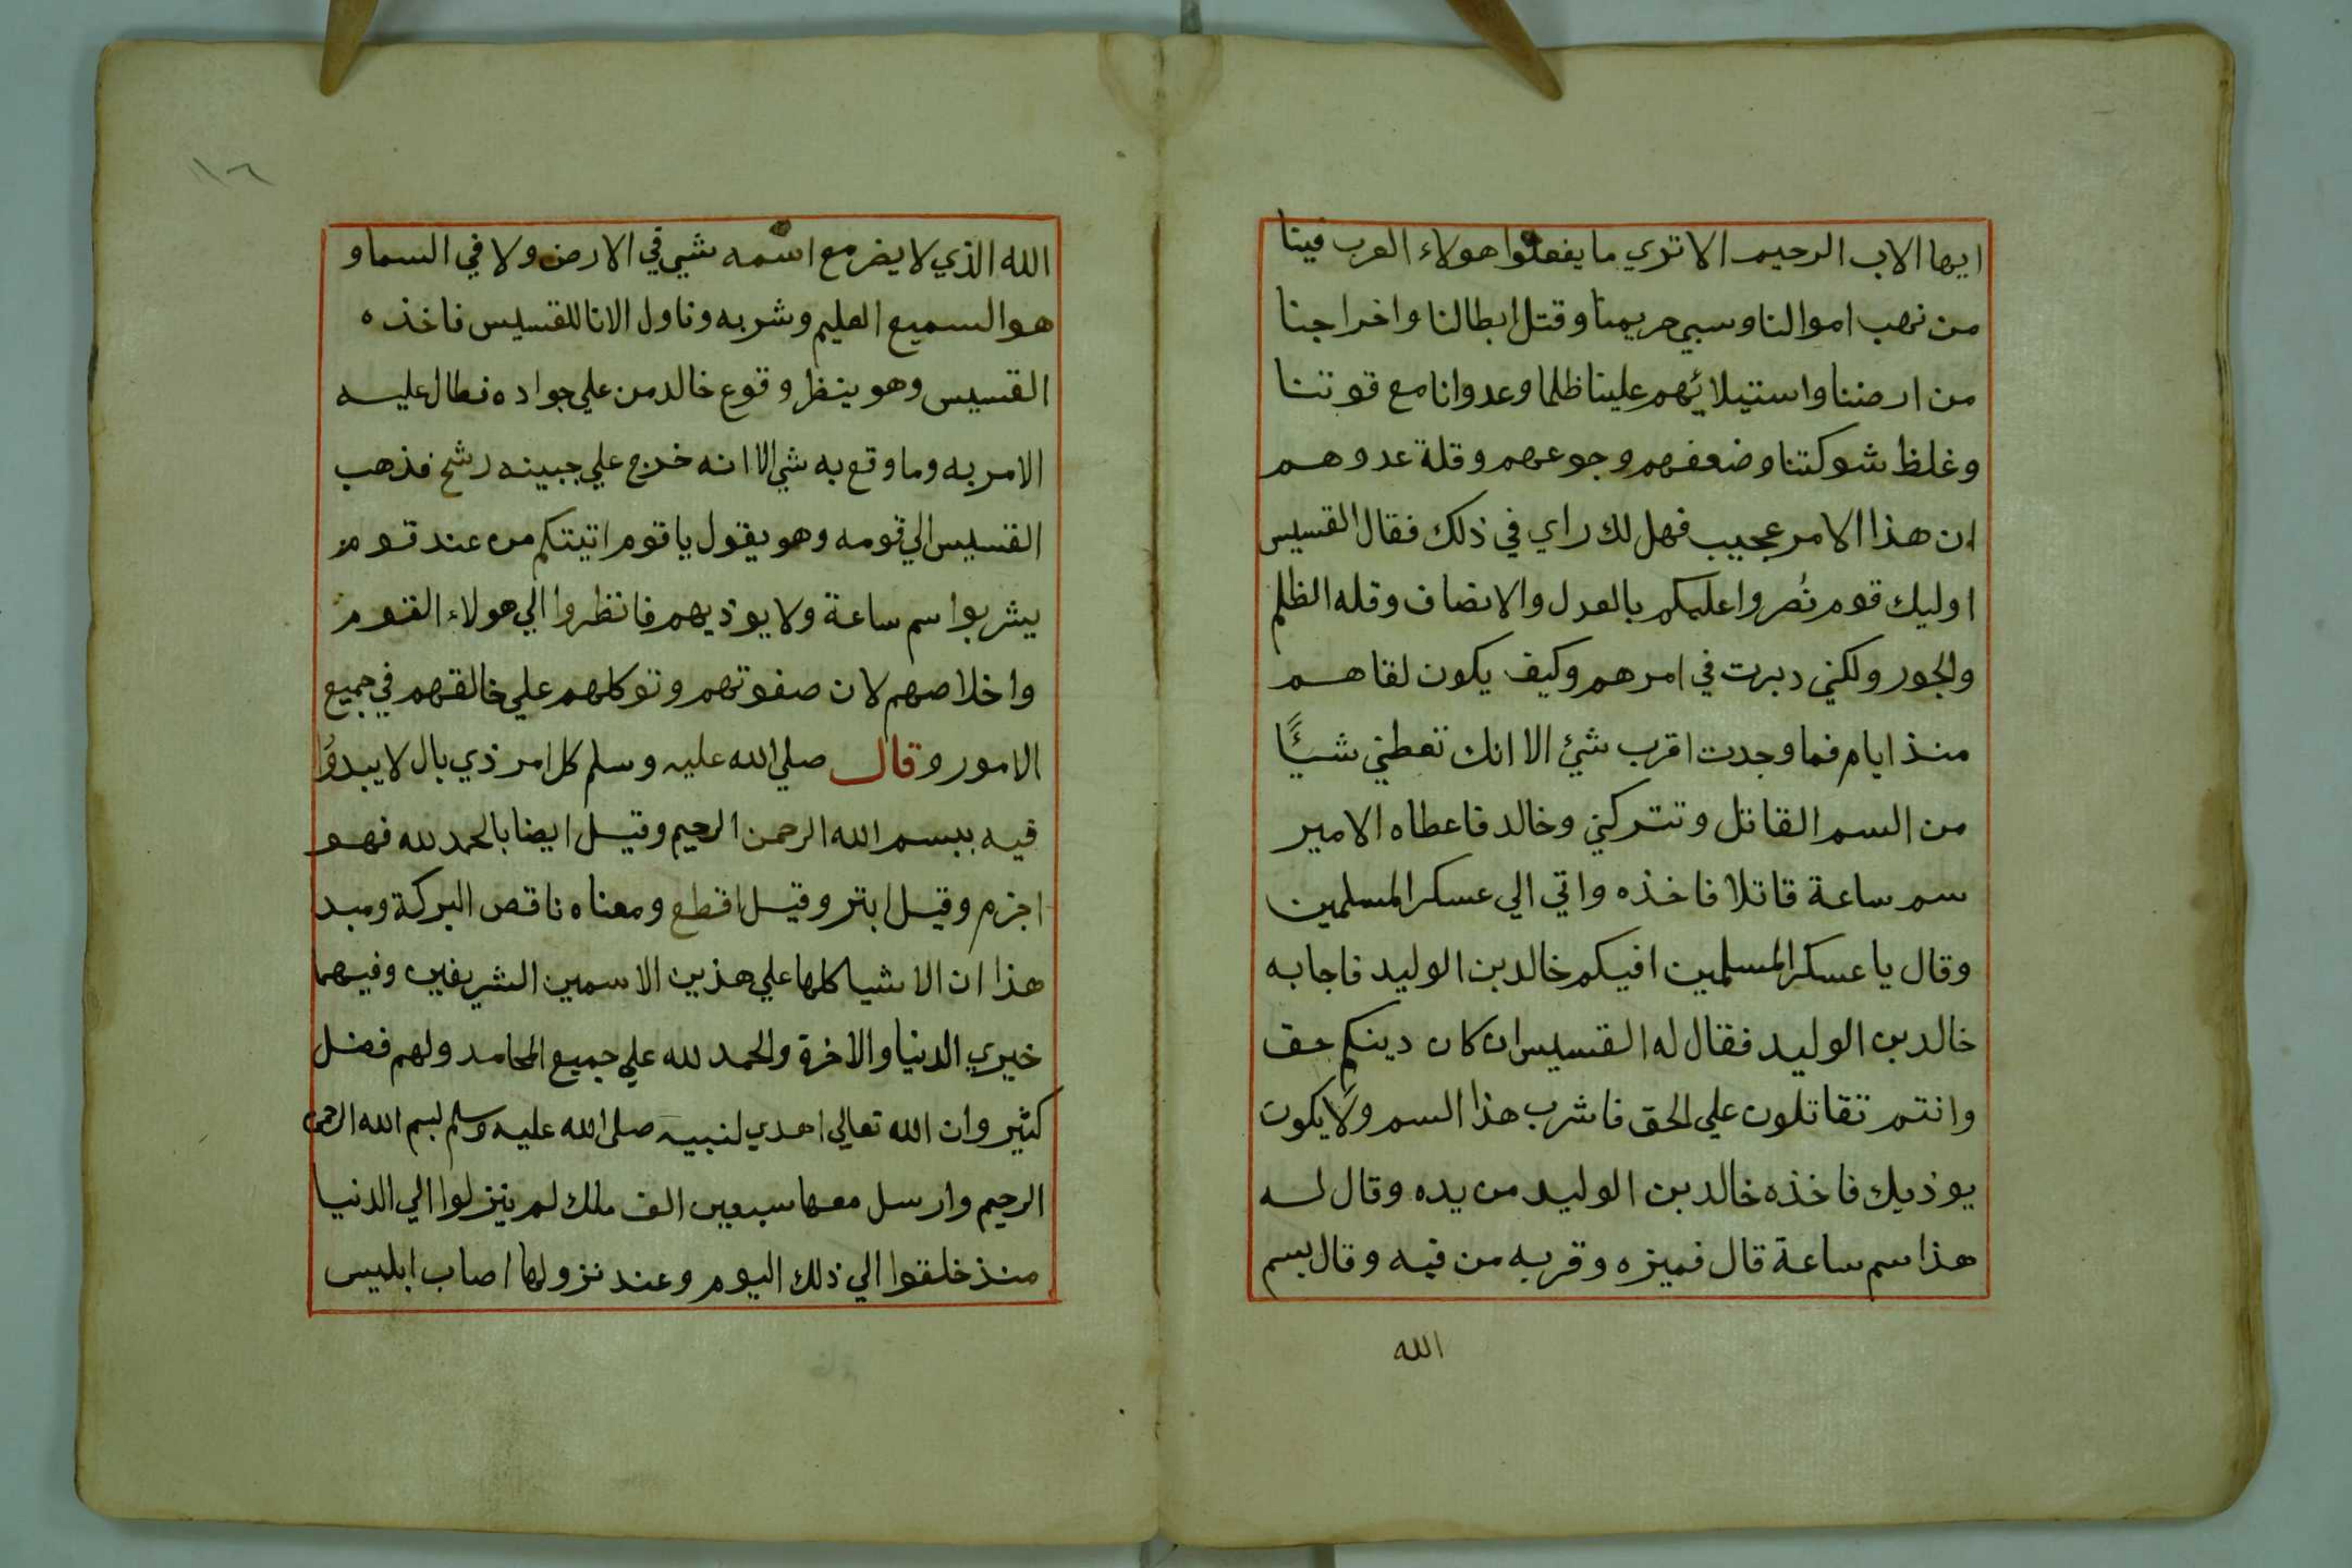 ايها الاب الرحيم الا تري ما يفعلوا هولاء العرب فينا
من نهب اموالنا وسبي حريمنا وقتل ابطالنا واخراجنا
من ارضنا واستيلائهم علينا ظلما وعدوانا مع قوتنا
وغلظ شوكتنا وضعفهم وجوعهم وقلة عدوهم
ان هذا الامر عجيب فهل لك راي في ذلك فقال القسيس
اوليك قوم نُصروا عليكم بالعدل والانصاف وقله الظلم
والجور ولكني دبرت في امرهم وكيف يكون لقاهم
منذ ايام فما وجدت اقرب شئ الا انك تعطني شئًا
من السم القاتل وتتركني وخالد فاعطاه الامير
سم ساعة قاتلا فاخذه واتي الي عسكر المسلمين
وقال يا عسكر المسلمين افيكم خالد بن الوليد فاجابه
خالد بن الوليد فقال له القسيس ان كان دينكم حق
وانتم تقاتلون علي الحق فاشرب هذا السم ولا يكون
يوذيك فاخذه خالد بن الوليد من يده وقال له
هذا سم ساعة قال فميزه وقربه من فيه وقال بسم
الله
١٦
الله الذي لا يضر مع اسمه شيي في الارض ولا في السما و
هو السميع العليم وشربه وناول الانا للقسيس فاخذه
القسيس وهو ينظر وقوع خالد من علي جواده فطال عليه
الامر به وما وقع به شي الا انه خرج علي جبينه رشح فذهب
القسيس الي قومه وهو يقول يا قوم اتيتكم من عند قوم
يشربوا سم ساعة ولا يوذيهم فانظروا الي هولاء القوم
واخلاصهم لان صفوتهم وتوكلهم علي خالقهم في جميع
الامور وقال صلي الله عليه وسلم كل امر ذي بال لا يبدوُا
فيه ببسم الله الرحمن الرحيم وقيل ايضا بالحمد لله فهو
اجزم وقيل ابتر وقيل اقطع ومعناه ناقص البركة ومبد
هذا ان الاشيا كلها علي هذين الاسمين الشريفين وفيهما
خيري الدنيا والاخرة والحمد لله علي جميع المحامد ولهم فضل
كثير وان الله تعالي اهدي لنبيه صلي الله عليه وسلم بسم الله الرحمن
الرحيم وارسل معها سبعين الف ملك لم ينزلوا الي الدنيا
منذ خلقوا الي ذلك اليوم وعند نزولها اصاب ابليس